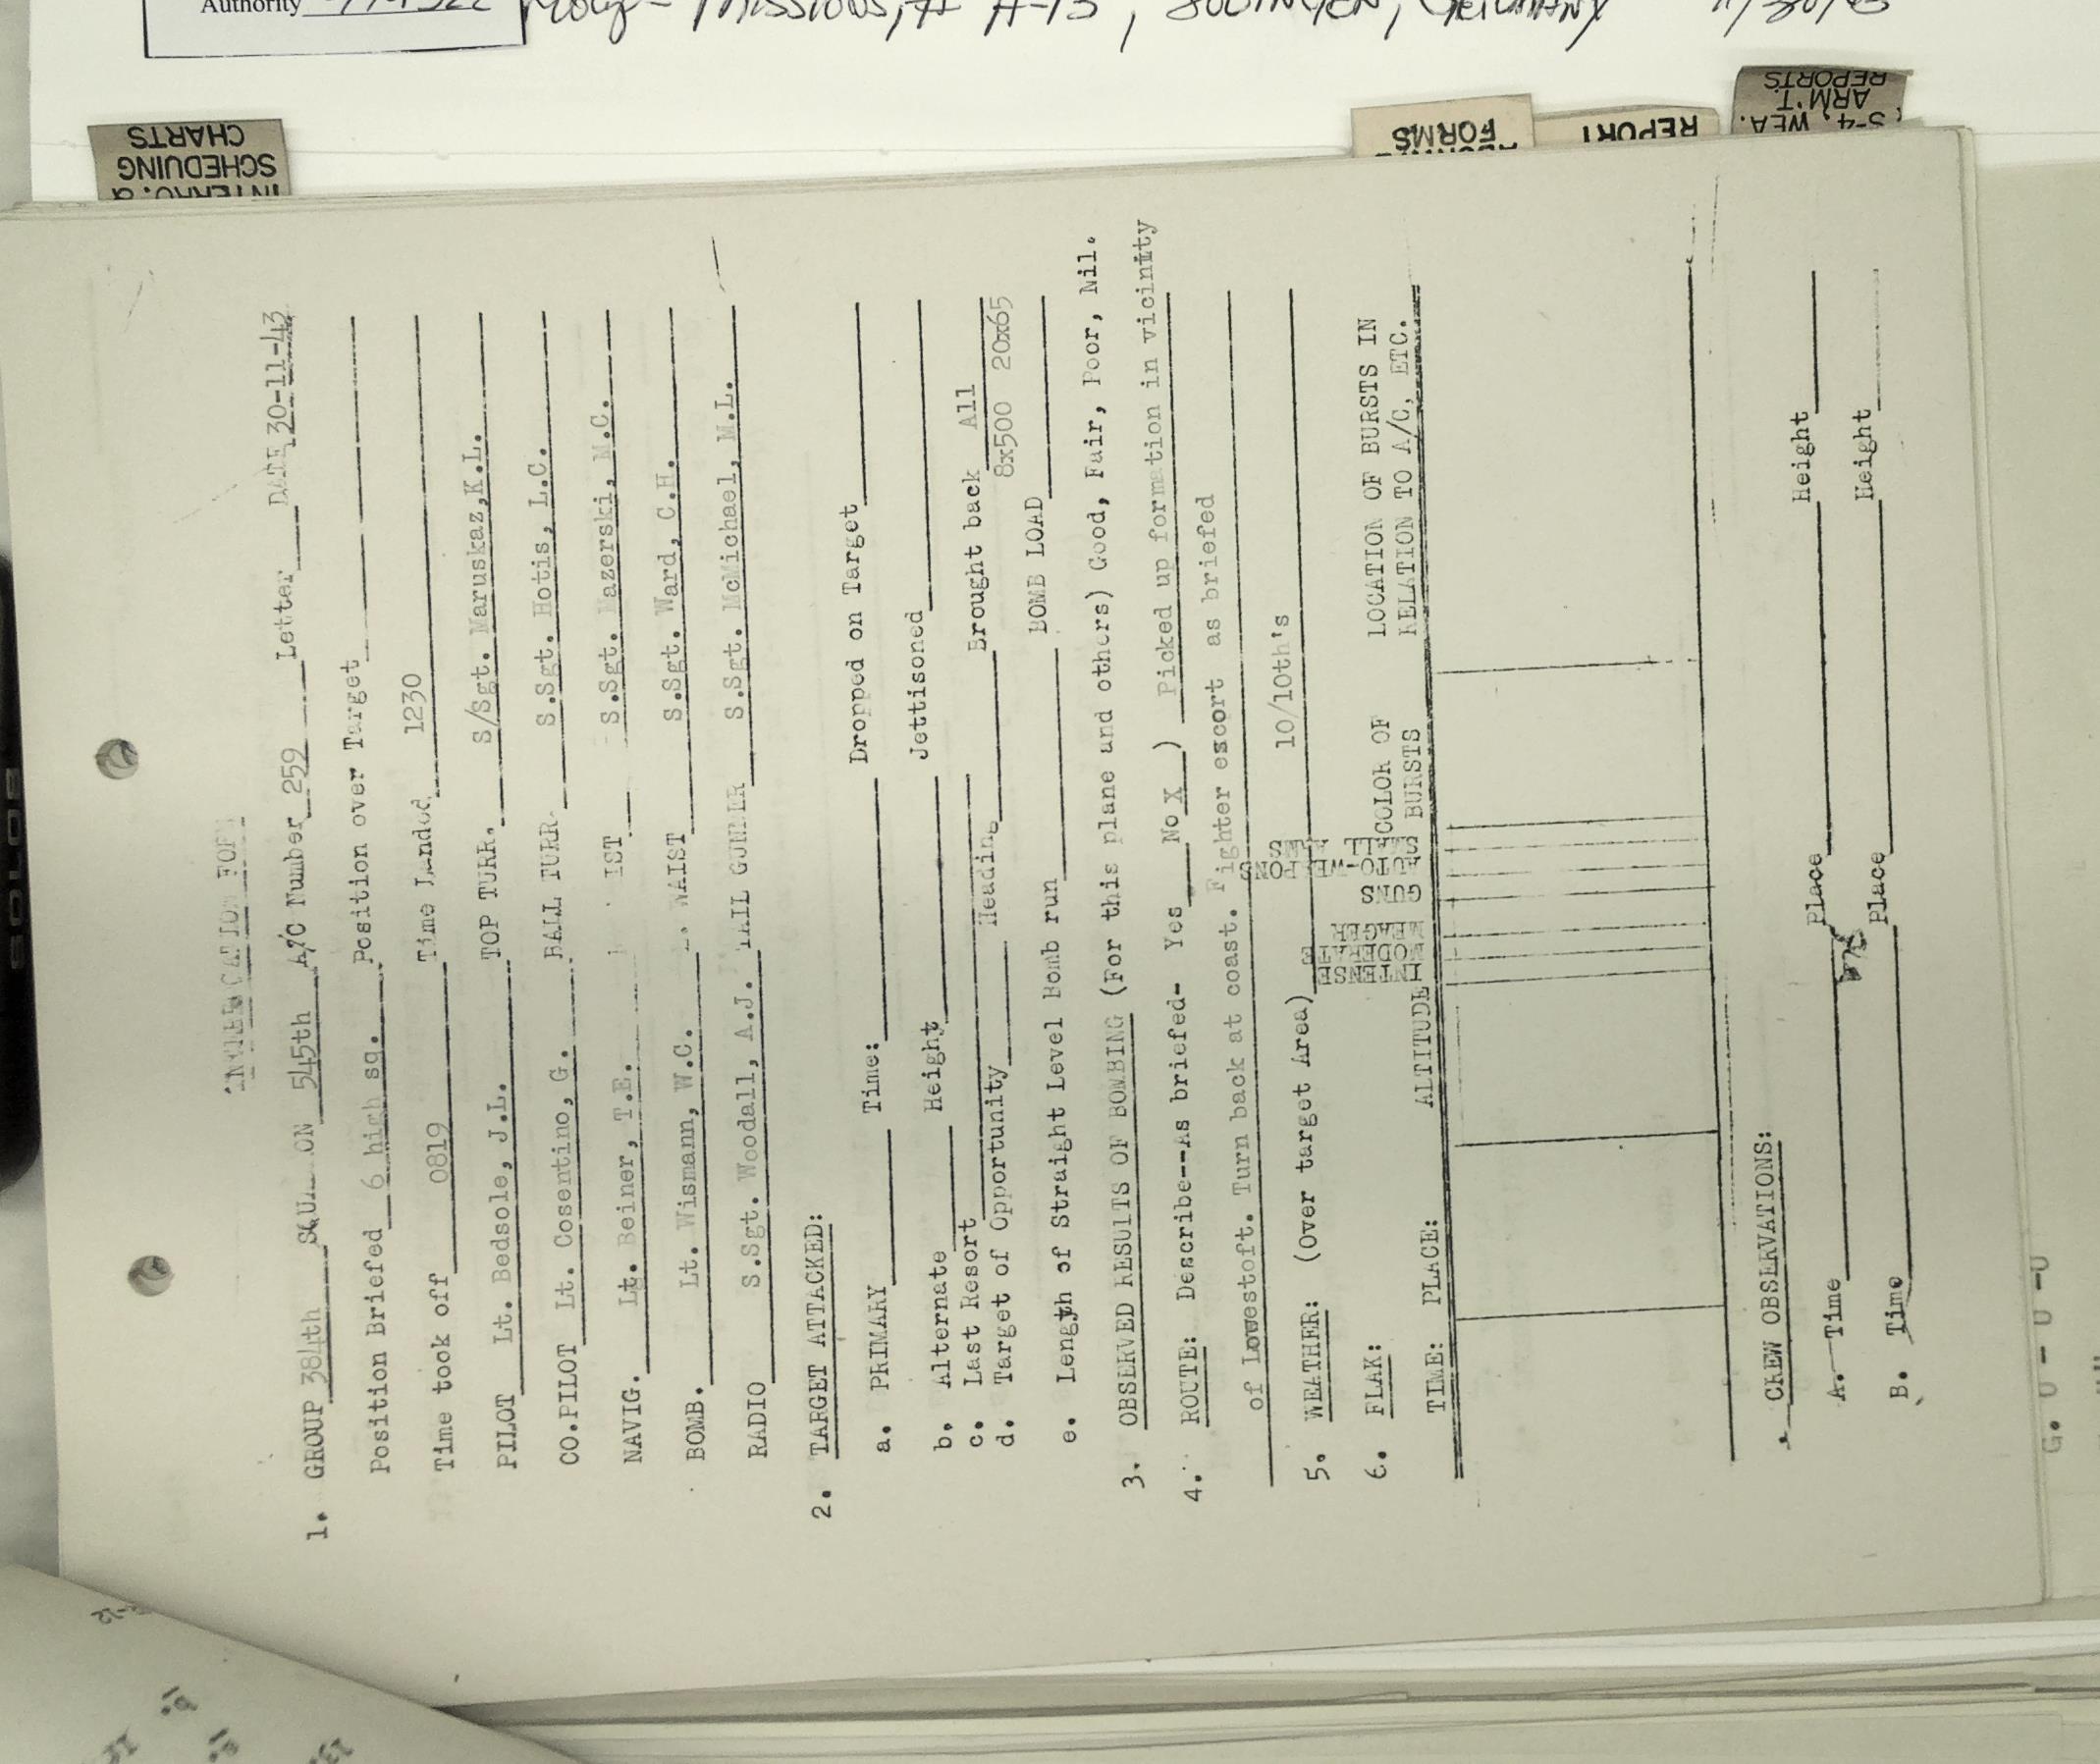 Authority
Missions, # A-13, Solingen, Germany 11/30/43
SCHEDULING
CHARTS
FORMS
REPORT
S-4, WEA.
ARM'T.
REPORTS
INTERROGATION FORM
1. GROUP 384th SQUADRON 545th A/C Number 259 Letter DATE 30-11-43
Position Briefed 6 high sq. Position over Target
Time took off 0819 Time Landed 1230
PILOT Lt. Bedsole, J.L. TOP TURR. S/Sgt. Maruskaz,K.L.
CO.PILOT Lt. Cosentino, G. BALL TURR. S.Sgt. Hotis, L.C.
NAVIG. Lt. Beiner, T.E. S.Sgt. Mazerski, M.C.
BOMB. Lt. Wismann, W.C. WAIST S.Sgt. Ward, C.H.
RADIO S.Sgt. Woodall, A.J. TAIL GUNNER S.Sgt. McMichael, M.L.
2. TARGET ATTACKED:
a. PRIMARY Time: Dropped on Target
b. Alternate Height Jettisoned
c. Last Resort Heading Brought back All
d. Target of Opportunity 8x500 20x65
e. Length of Straight Level Bomb run BOMB LOAD
3. OBSERVED RESULTS OF BOMBING (For this plane and others) Good, Fair, Poor, Nil.
4. ROUTE: Describe--As briefed- Yes No X ) Picked up formation in vicinity
of Lowestoft. Turn back at coast. Fighter escort as briefed
5. WEATHER: (Over target Area) 10/10th's
6. FLAK:
TIME: PLACE: ALTITUDE INTENSE MODERATE MEAGER GUNS COLOR OF BURSTS LOCATION OF BURSTS IN RELATION TO A/C, ETC.
CREW OBSERVATIONS:
A. Time Place Height
B. Time Place Height